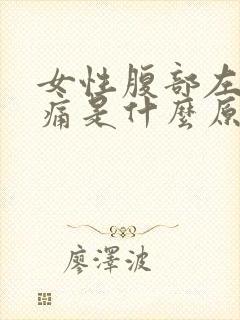 女性腹部左
痛是什麼原
廖澤波